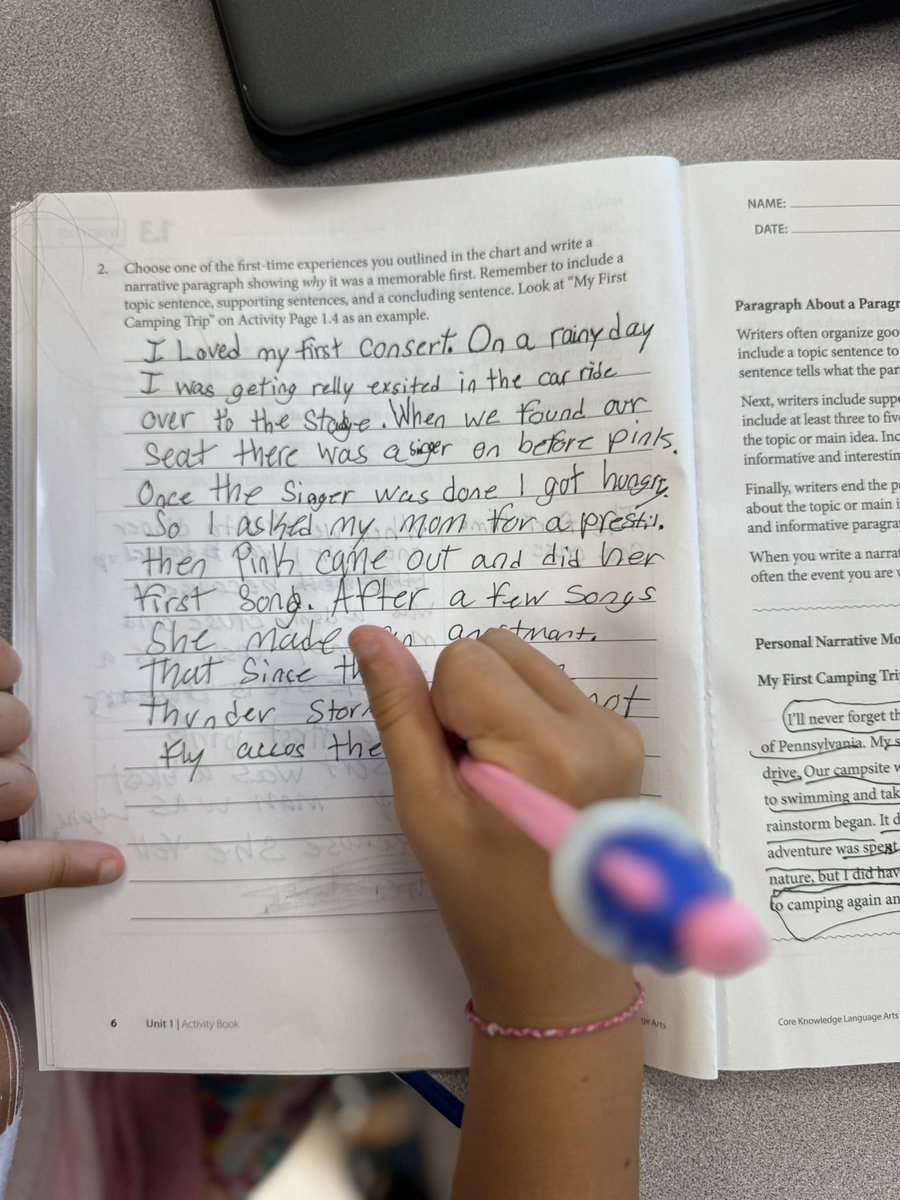 NAME:
DATE:
2. Choose one of the first-time experiences you outlined in the chart and write a
narrative paragraph showing why it was a memorable first. Remember to include a
topic sentence, supporting sentences, and a concluding sentence. Look at “My First
Camping Trip” on Activity Page 1.4 as an example.
I Loved my first Consert. On a rainy day
I was geting relly exsited in the car ride
over to the Stadge. When we found our
Seat there was a siger on before Pink.
Once the Sigger was done I got hungry.
So I asked my mom for a prestil.
then Pink came out and did her
first Song. After a few Songs
She made
That Since
Thunder
fly accos the
6 Unit 1 | Activity Book
Paragraph About a
Writers often organize
include a topic sentence to
sentence tells what the
Next, writers include
include at least three to
the topic or main idea.
informative and
Finally, writers end the
about the topic or main
and informative
When you write a
often the event you are
Personal Narrative
My First Camping
I’ll never forget
of Pennsylvania. My
drive. Our campsite
to swimming and
rainstorm began. It
adventure was spent
nature, but I did
to camping again
Core Knowledge Language Arts